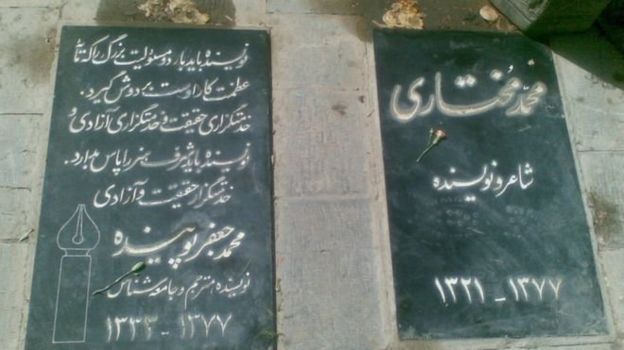 محمّد مُختاری
شاعر و نویسنده
۱۳۲۱ - ۱۳۷۷
نویسنده باید بار دو مسئولیت بزرگ را که
عظمت کار اوست بر دوش گیرد.
خدمتگزاری حقیقت و خدمتگزاری آزادی و
نویسنده باید شرف هنر را پاس دارد.
خدمتگزار حقیقت و آزادی
محمد جعفر پوینده
نویسنده مترجم و جامعه شناس
۱۳۳۳ - ۱۳۷۷